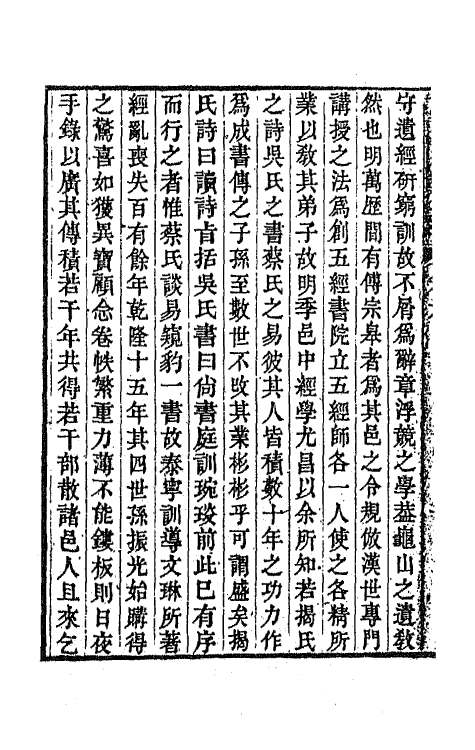 守遺經研窮訓故不屑爲辭章浮競之學葢龜山之遺敎
然也明萬歷間有傅宗臯者爲其邑之令規倣漢世專門
講授之法爲創五經書院立五經師各一人使之各精所
業以敎其弟子故明季邑中經學尤昌以余所知若揭氏
之詩吳氏之書蔡氏之易彼其人皆積數十年之功力作
爲成書傳之子孫至數世不敗其業彬彬乎可謂盛矣揭
氏詩曰讀詩㫖括吳氏書曰尙書庭訓琬琰前此巳有序
而行之者惟蔡氏談易窺豹一書故泰寧訓導文琳所著
經亂喪失百有餘年乾隆十五年其四世孫振光始購得
之驚喜如獲異寶顧念卷帙繁重力薄不能鏤板則日夜
手錄以廣其傳積若干年共得若干部散諸邑人且來乞